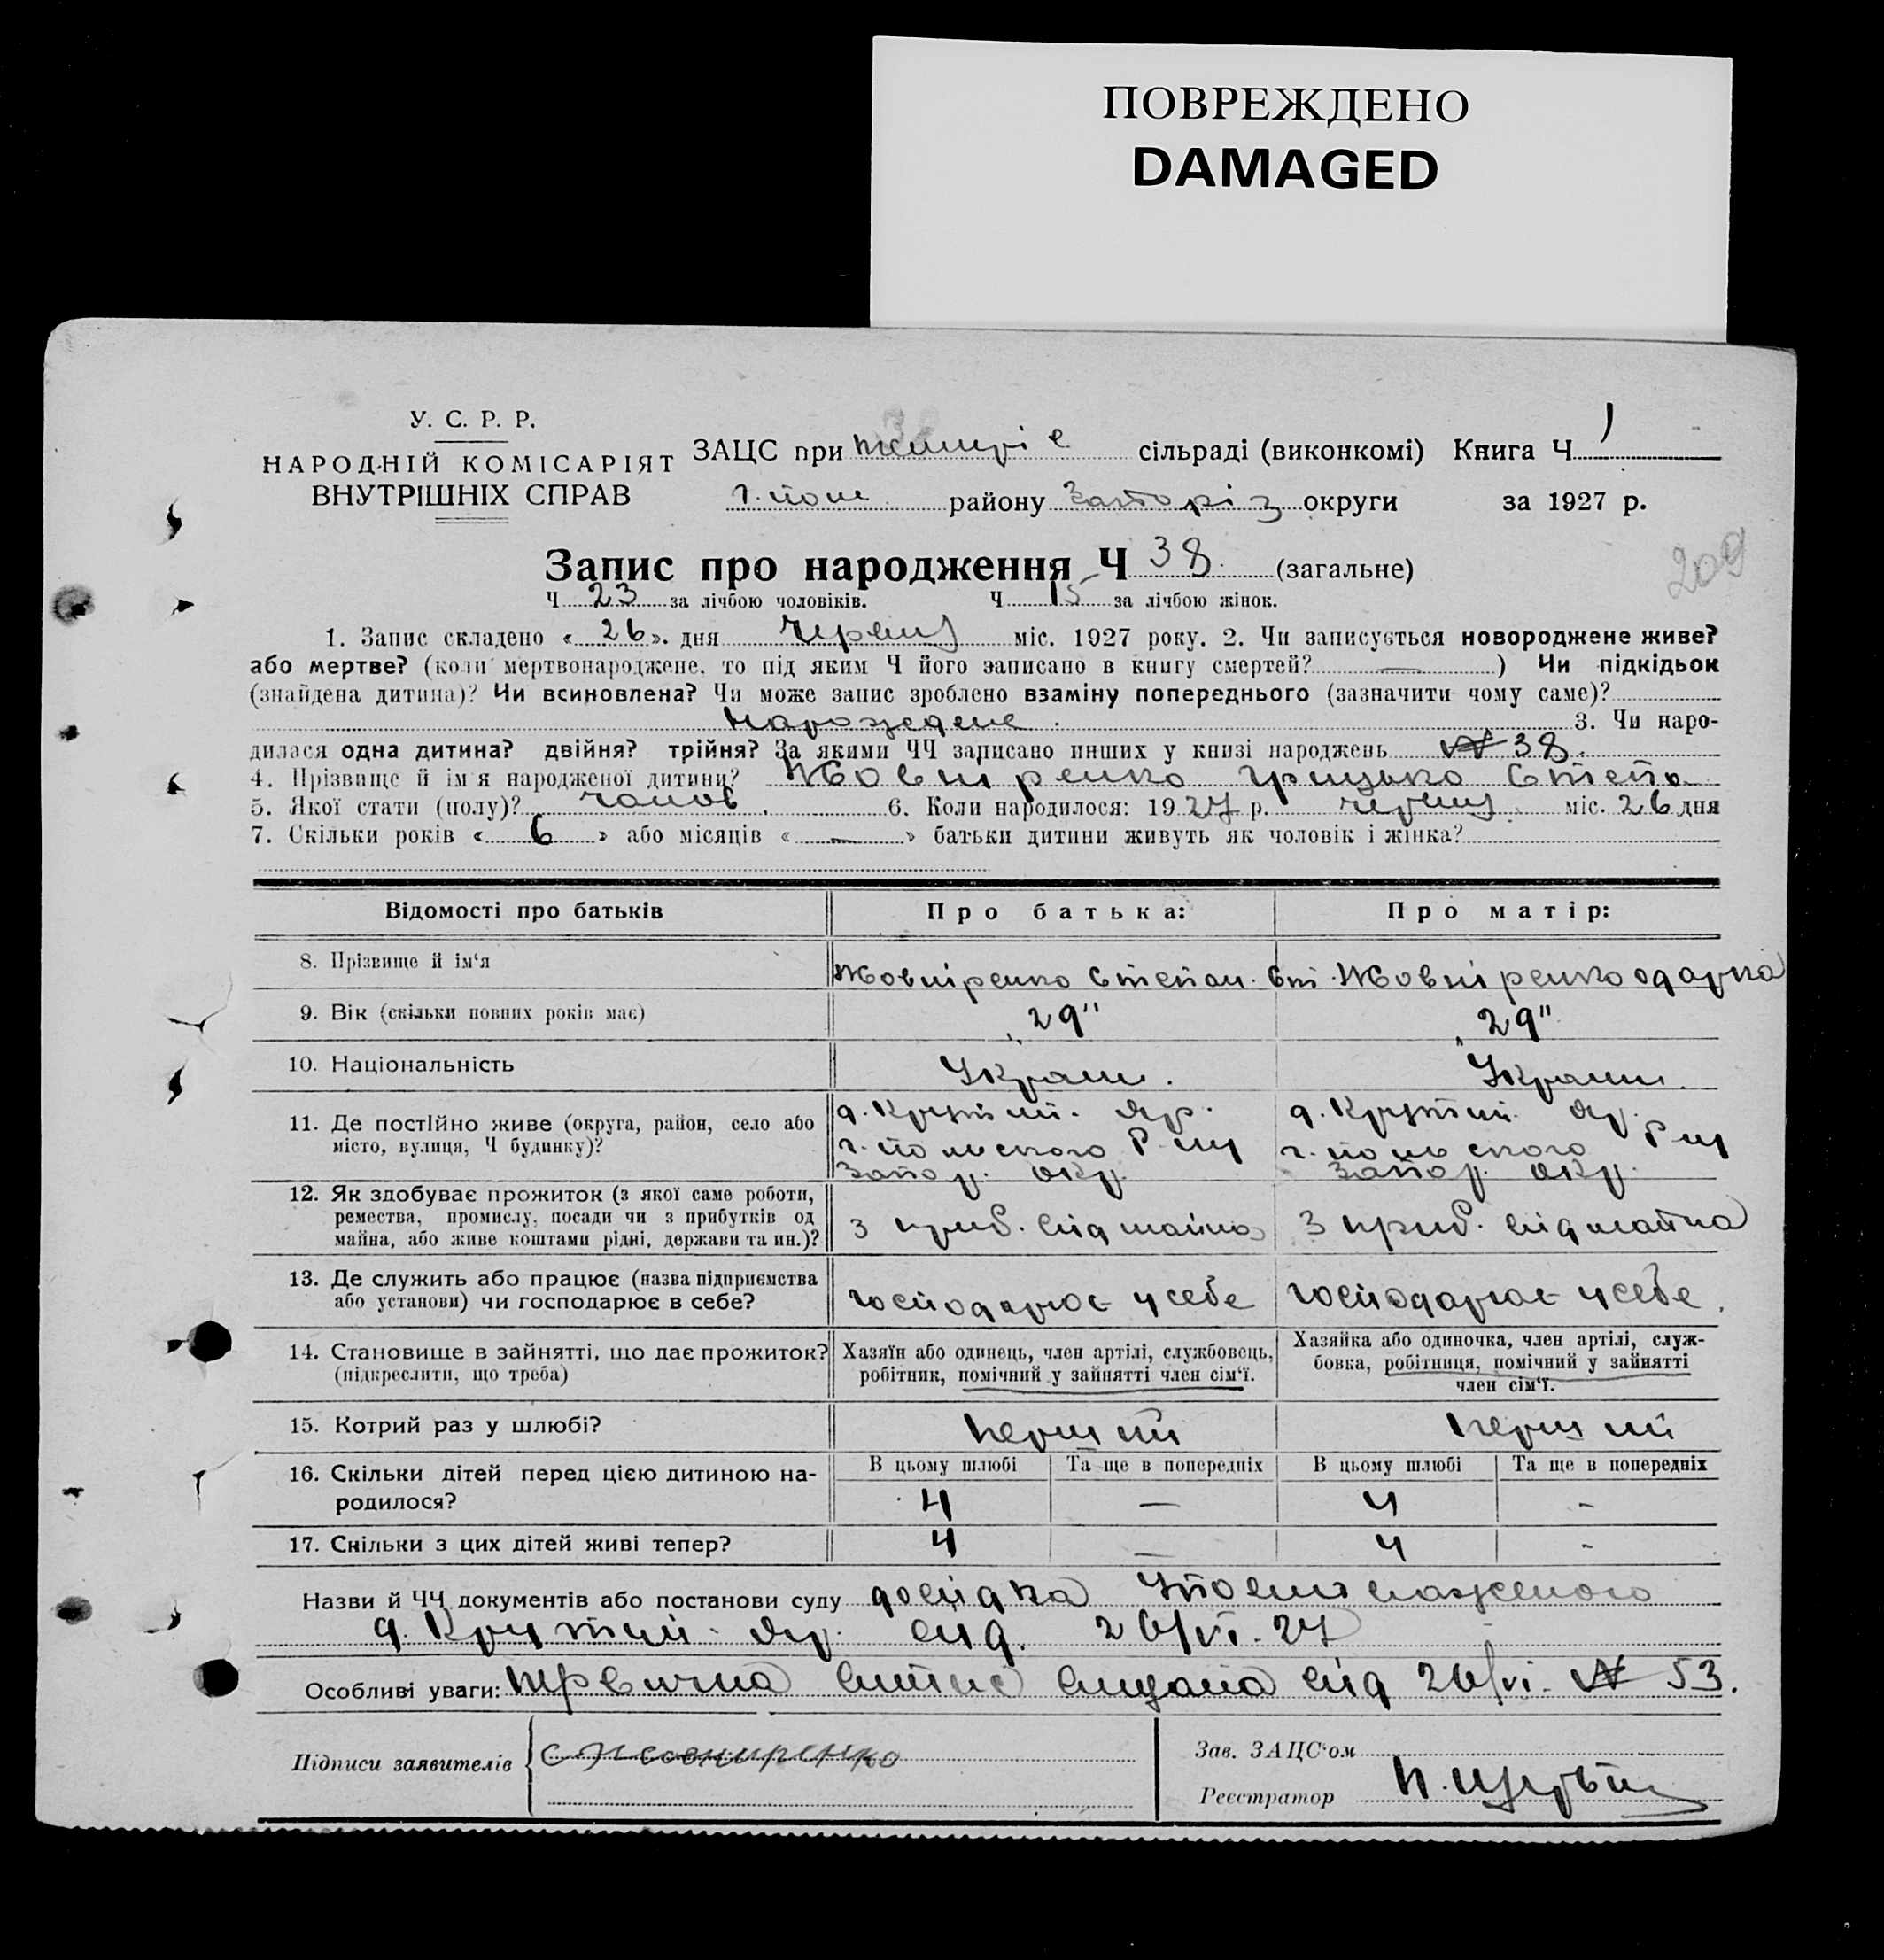 ПОВРЕЖДЕНО
DAMAGED
У. С. Р. Р.
НАРОДНІЙ КОМІСАРІЯТ
ВНУТРІШНІХ СПРАВ
ЗАЦС при сільраді (виконкомі) Книга Ч 1
району Запоріз округи за 1927 р.
209
Запис про народження Ч 38 (загальне)
Ч 23 за лічбою чоловіків. Ч 15 за лічбою жінок.
1. Запис складено « 26 ». дня червня міс. 1927 року. 2. Чи записується новороджене живе?
або мертве? (коли мертвонароджене, то під яким Ч його записано в книгу смертей? — ) Чи підкідьок
(знайдена дитина)? Чи всиновлена? Чи може запис зроблено взаміну попереднього (зазначити чому саме)?
народжене. 3. Чи наро-
дилася одна дитина? двійня? трійня? За якими ЧЧ записано инших у книзі народжень № 38.
4. Прізвище й ім'я народженої дитини? Жовніренко Грицько Степа
5. Якої стати (полу)? чолов. 6. Коли народилося: 1927 р. червня міс. 26 дня
7. Скільки років « 6 » або місяців « — » батьки дитини живуть як чоловік і жінка?
Відомості про батьків Про батька: Про матір:
8. Прізвище й ім'я Жовніренко Степан. Ст. Жовніренко Одарка
9. Вік (скільки повних років має) „29" „29"
10. Національність Украин. Украин.
11. Де постійно живе (округа, район, село або місто, вулиця, Ч будинку)? д. Крутий. Яр. д. Крутий. Яр.
г. польского Р-ну г. польского Р-ну
Запор. окр. Запор. окр.
12. Як здобуває прожиток (з якої саме роботи,
ремества, промислу, посади чи з прибутків од
майна, або живе коштами рідні, держави та ин.)? З приб. від майна З приб. від майна
13. Де служить або працює (назва підприємства
або установи) чи господарює в себе? господарює у себе господарює у себе.
14. Становище в зайнятті, що дає прожиток?
(підкреслити, що треба)
Хазяїн або одинець, член артілі, службовець,
робітник, помічний у зайнятті член сім'ї.
Хазяйка або одиночка, член артілі, служ-
бовка, робітниця, помічний у зайнятті
член сім'ї.
15. Котрий раз у шлюбі? перший перший
16. Скільки дітей перед цією дитиною на-
родилося?
В цьому шлюбі Та ще в попередніх В цьому шлюбі Та ще в попередніх
4 — 4 -
17. Скільки з цих дітей живі тепер? 4 — 4 -
Назви й ЧЧ документів або постанови суду довідка Уповноваженого
д. Крутий. Яр. від. 26/VI-27
Особливі уваги: первична витпис видана від 26/VI- № 53.
Підписи заявителів С Жовниренко
Зав. ЗАЦС'ом
Реєстратор